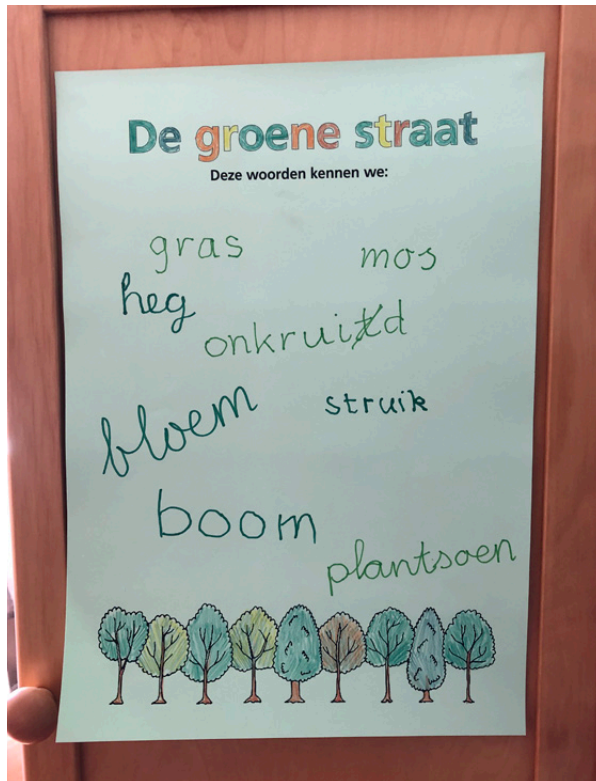 De groene straat
Deze woorden kennen we:
gras
mos
heg
onkruid
bloem
struik
boom
plantsoen